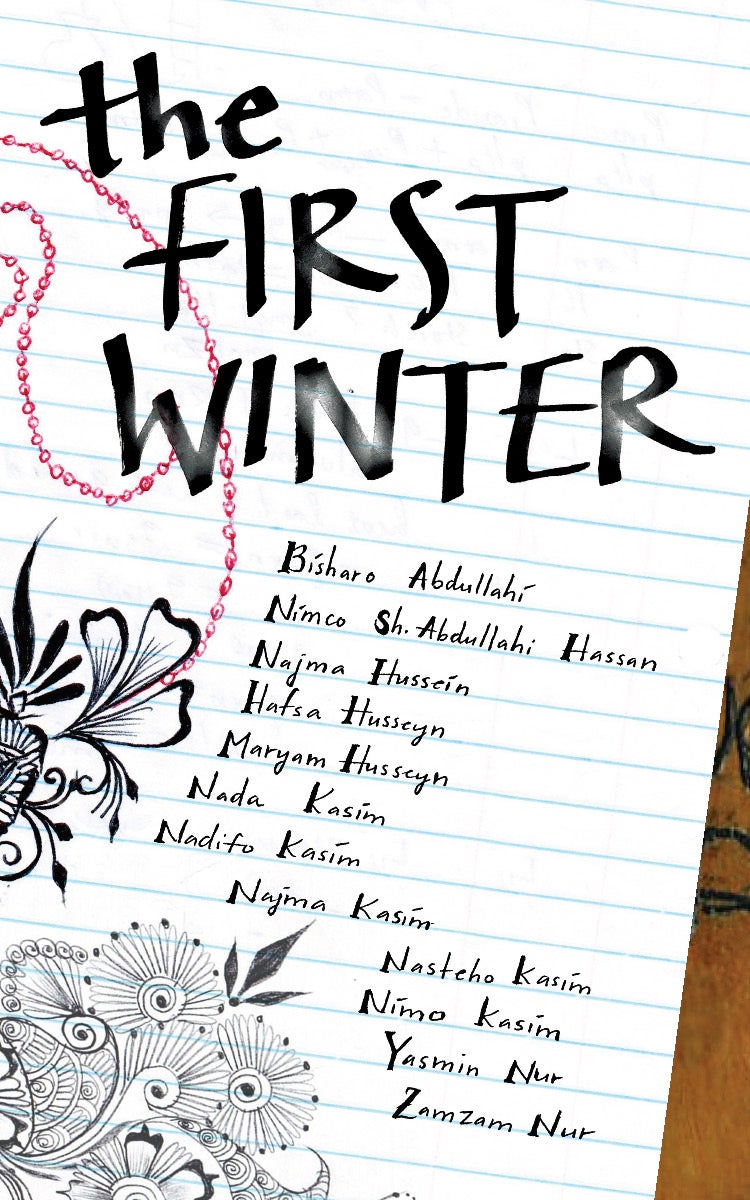 the
FIRST
WINTER
Bisharo Abdullahi
Nimco Sh. Abdullahi Hassan
Najma Hussein
Hafsa Husseyn
Maryam Husseyn
Nada Kasim
Nadifo Kasim
Najma Kasim
Nasteho Kasim
Nimo Kasim
Yasmin Nur
Zamzam Nur